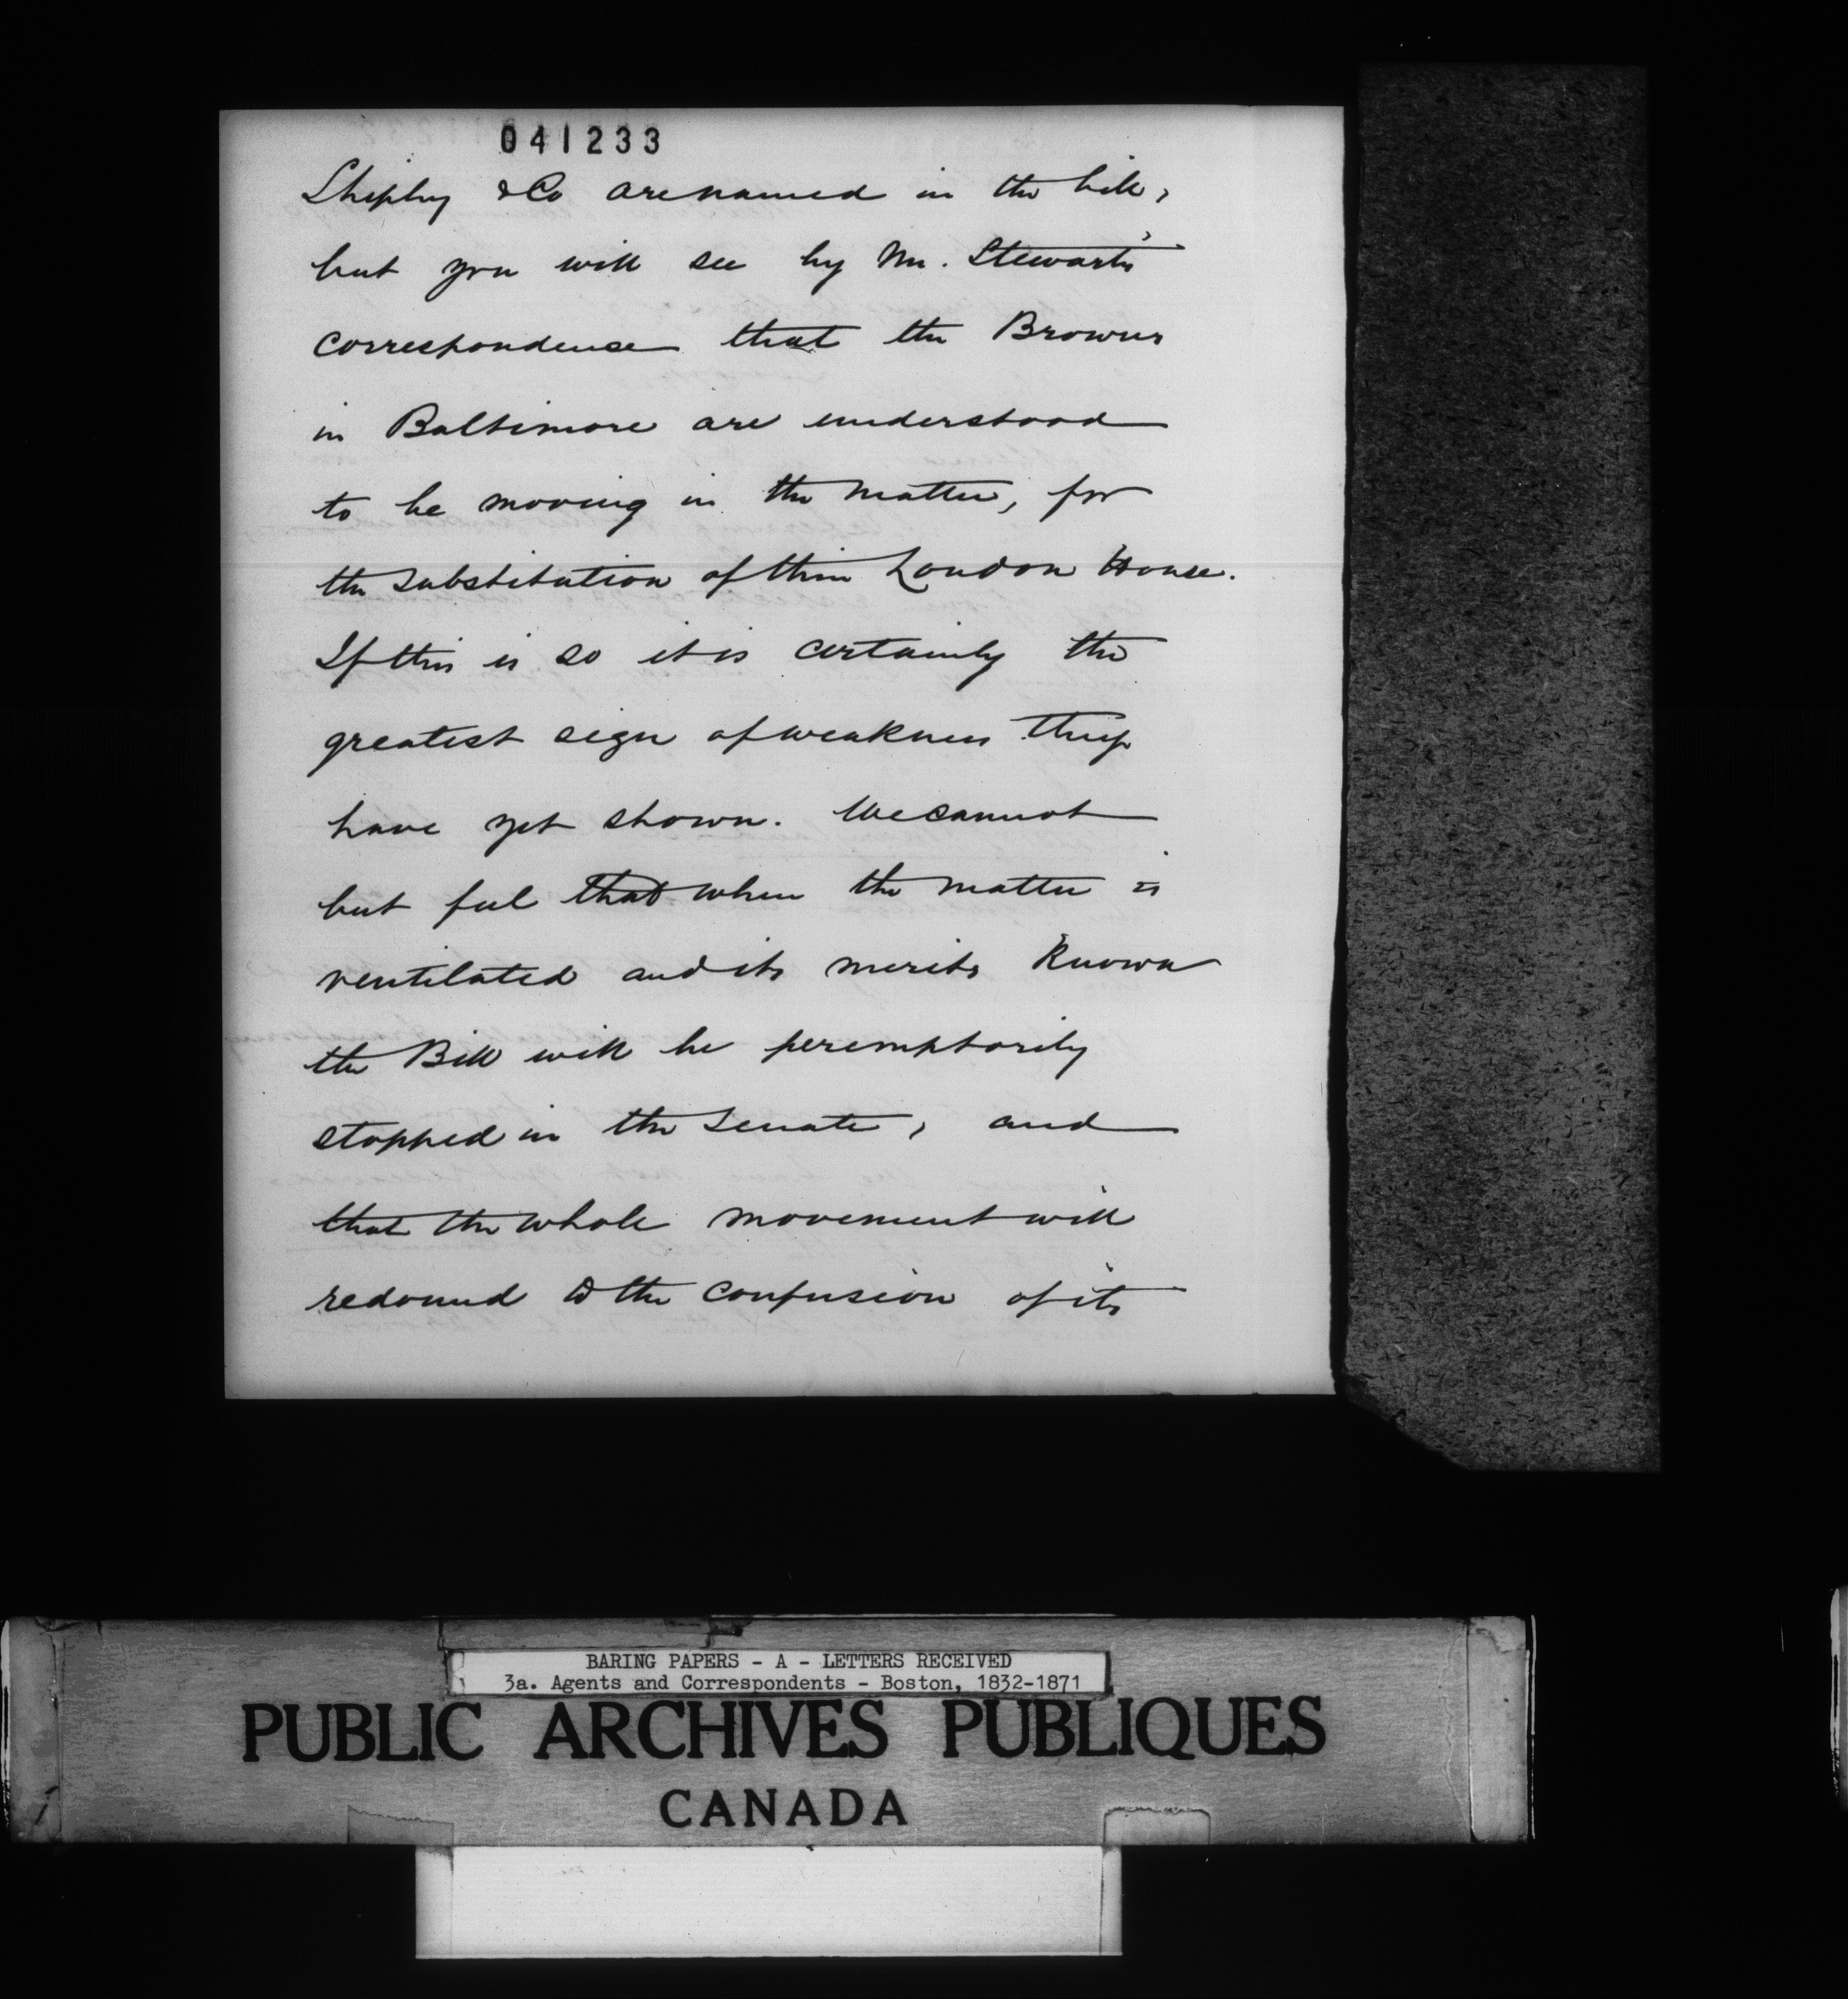 041233
Shipley & Co are named in the bill,
but you will see by Mr. Stewart's
correspondence that the Browns
in Baltimore are understood
to be moving in the matter, for
the substitution of their London House.
If this is so it is certainly the
greatest sign of weakness they
have yet shown. We cannot
but feel that when the matter is
ventilated and its merits known
the Bill will be peremptorily
stopped in the Senate, and
that the whole movement will
redound to the confusion of its
BARING PAPERS - A - LETTERS RECEIVED
3a. Agents and Correspondents - Boston, 1832-1871
PUBLIC ARCHIVES PUBLIQUES
CANADA